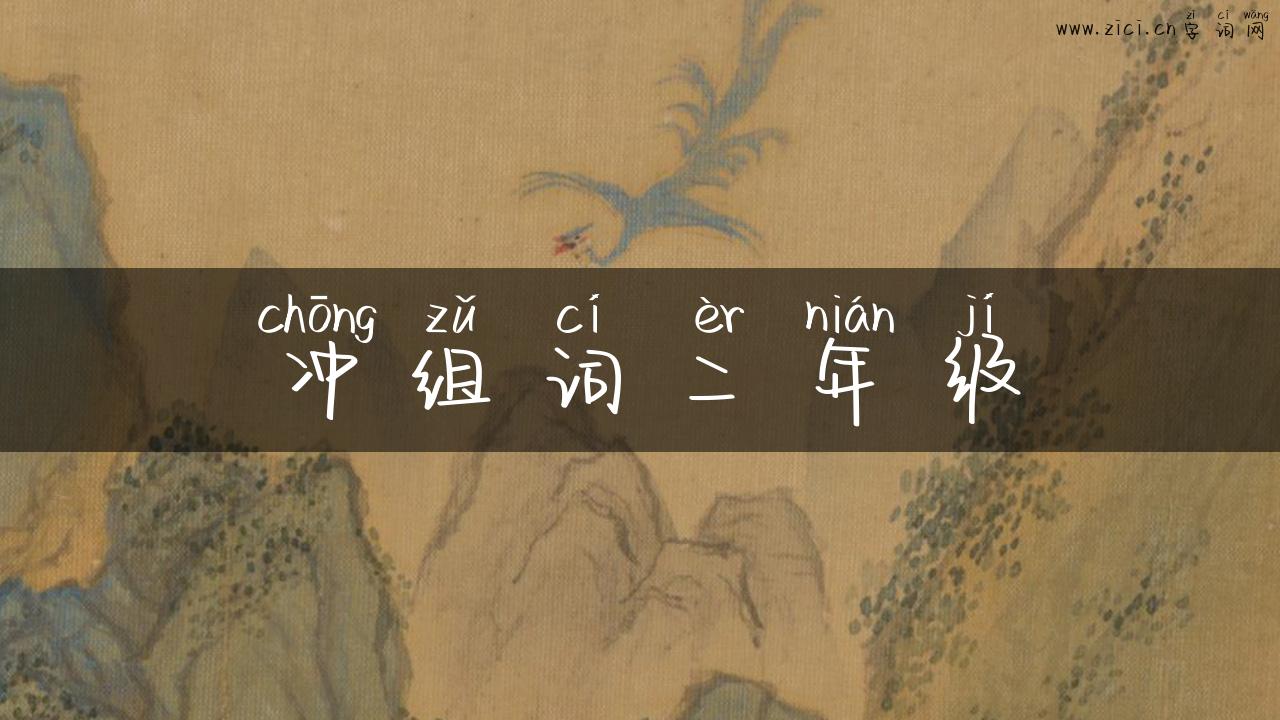 zì cí wǎng
www.zici.cn字词网
chōng zǔ cí èr nián jí
冲组词二年级